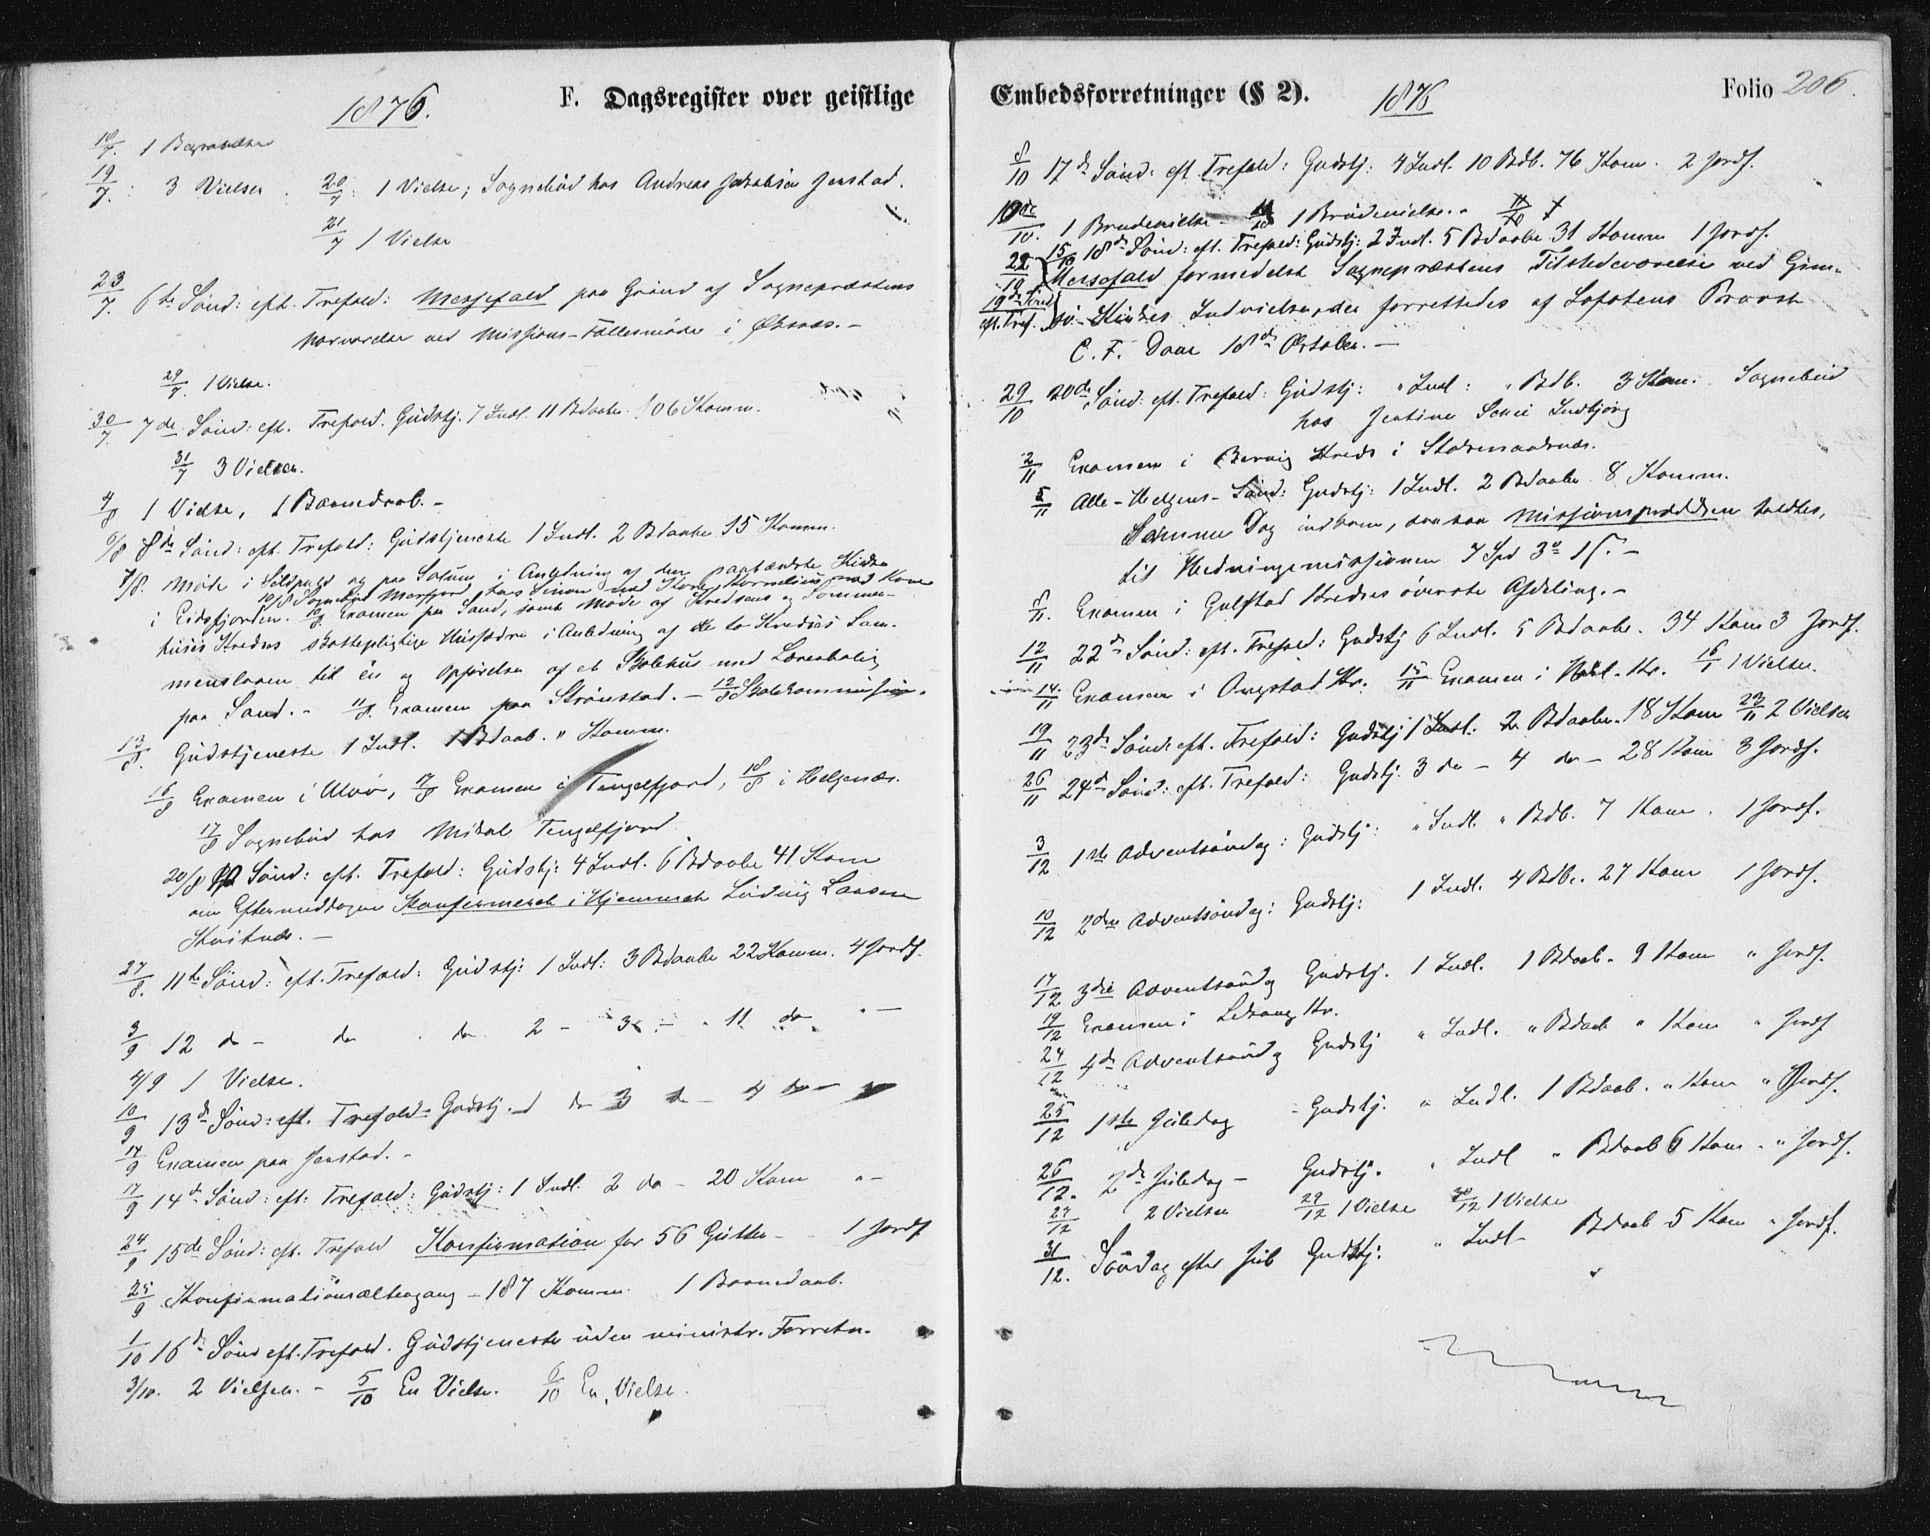 F. Dagsregister over geistlige
1876.
18/7. 1 Begravelse
19/7. : 3 Vielser. 20/7: 1 Vielse; Sognebud hos Andreas Jakobsen Jenstad.
21/7 1 Vielse
23/7. 6te Sønd: eft. Trefold: Messefald paa Grund af Sognepræstens
Nærværelse ved Missions-Fællesmøde i Øksnæs. -
29/7 1 Vielse.
30/7 7de Sønd: eft. Trefold. Gudstj. 7 Indl. 11 Bdaabe 106 Komm.
31/7 3 Vielser.
4/8 1 Vielse, 1 Barnedaab. -
6/8 8de Sønd: eft. Trefold: Gudstjeneste 1 Indl. 2 Bdaabe 35 Komm.
7/8. Møde i Sildpold og paa i Anledning af den paatænkte Kirke
10/8 Sognebud hos
i Eidsfjorden. 10/8 Examen paa Sand, samt Møde af Kredsens og Sommer-
huses Kredses skattepligtige Husfædre i Anledning af de to Kredses Sam-
menslaaen til én og Opførelse af et Skolehus med Lærerbolig
paa Sand. - 11/8. Examen paa Strønstad. - 12/8 Skolekommission.
13/8. Gudstjeneste 1 Indl. 1 Bdaab. " Komm.
16/8 Examen i Ulvø, 17/8 Examen i Tengelfjord, 18/8 i Helgenæs.
17/8 Sognebud hos Mikal Tengelfjord
20/8 10 Sønd: eft. Trefold: Gudstj: 4 Indl. 6 Bdaabe 41 Kom
om Eftermiddagen Konfirmeret i Hjemmet Ludvig Larsen
Kvitnæs. -
27/8. 11te Sønd: eft. Trefold: Gudstj: 1 Indl: 3 Bdaabe 22 Komm. 4 Jordf.
3/9 12 do - do. do 2 - 3 - " 11 do " -
4/9 1 Vielse.
10/9 13de Sønd: eft. Trefold. Gudstj. 1 do 3 do - 4 do -
14/9 Examen paa Jenstad. -
17/9 14de Sønd: eft: Trefold: Gudstj: 1 Indl. 2 do - 20 Kom " -
24/9 15de Sønd: eft. Trefold Konfirmation for 56 Gutter - - 1 Jordf
25/9 Konfirmationsaltergang - 187 Komm. 1 Barnedaab.
1/10 16de Sønd eft. Trefold. Gudstjeneste uden ministr. Forretn.
3/10. 2 Vielser. - 5/10 En Vielse. 6/10 En Vielse.
Embedsforretninger (§ 2).
1876
Folio 206.
8/10 17de Sønd: eft Trefold: Gudstj: 4 Indl. 10 Bdb. 76 Kom. 2 Jordf.
10de/10. 1 Brudevielse - 11/10 1 Brudevielse. -
15/10 18de Sønd: eft. Trefold: Gudstj: 2 Indl. 5 Bdaabe 31 Komm 1 Jordf.
22/10 Messefald formedelst Sognepræstens Tilstedeværelse ved Gim-
19de Sønd eft. Tref. sø Kirkes Indvielse, der forrettedes af Lofotens Provst
C. F. Dam 18de Oktober. -
29/10 20de Sønd: eft. Trefold: Gudstj: " Indl: " Bdb. 3 Kom. Sognebud
hos Jentine Indbjørg
2/11 Examen i Bervig Kreds i Stokmarknæs.
5/11 Alle-Helgens-Sønd: Gudstj: 1 Indl. 2 Bdaabe 8 Komm.
Samme Dag indkom, da Missionsprædiken holdtes,
til Hedningemissionen 7 Spd
8/11. Examen i Gulstad Kredses øverste Afdeling. -
12/11 22de Sønd: eft. Trefold: Gudstj 6 Indl. 5 Bdaabe. 34 Kom 3 Jordf.
14/11 Examen i Kr. 15/11 Examen i Kr. 16/11 1 Vielse.
19/11 23de Sønd: eft. Trefold: Gudstj 1 Indl. 2 Bdaabe. 18 Kom 23/11 2 Vielser
26/11 24de Sønd: eft. Trefold: Gudstj: 3 do - 4 do - 28 Kom 3 Jordf.
3/12 1ste Adventsøndag: Gudstj: " Indl. " Bdb. 7 Kom. 1 Jordf.
10/12 2den Adventsøndag: Gudstj: 1 Indl. 4 Bdb. 27 Kom 1 Jordf.
17/12 3die Adventsøndag Gudstj. 1 Indl. 1 Bdaab. 9 Kom " Jordf.
19/12 Examen i Kr.
24/12 4de Adventsøndag Gudstj " Indl. " Bdaab " Kom " Jordf
25/12 1ste Juledag - Gudstj. " Indl. 1 Bdaab. " Kom " Jordf.
26/12. 2de Juledag - Gudstj. " Indl " Bdaab 6 Kom. " Jordf.
27/12 2 Vielser 29/12 1 Vielse 30/12 1 Vielse
31/12. Søndag efter Jul Gudstj: " Indl - Bdaab 5 Kom " Jordf.